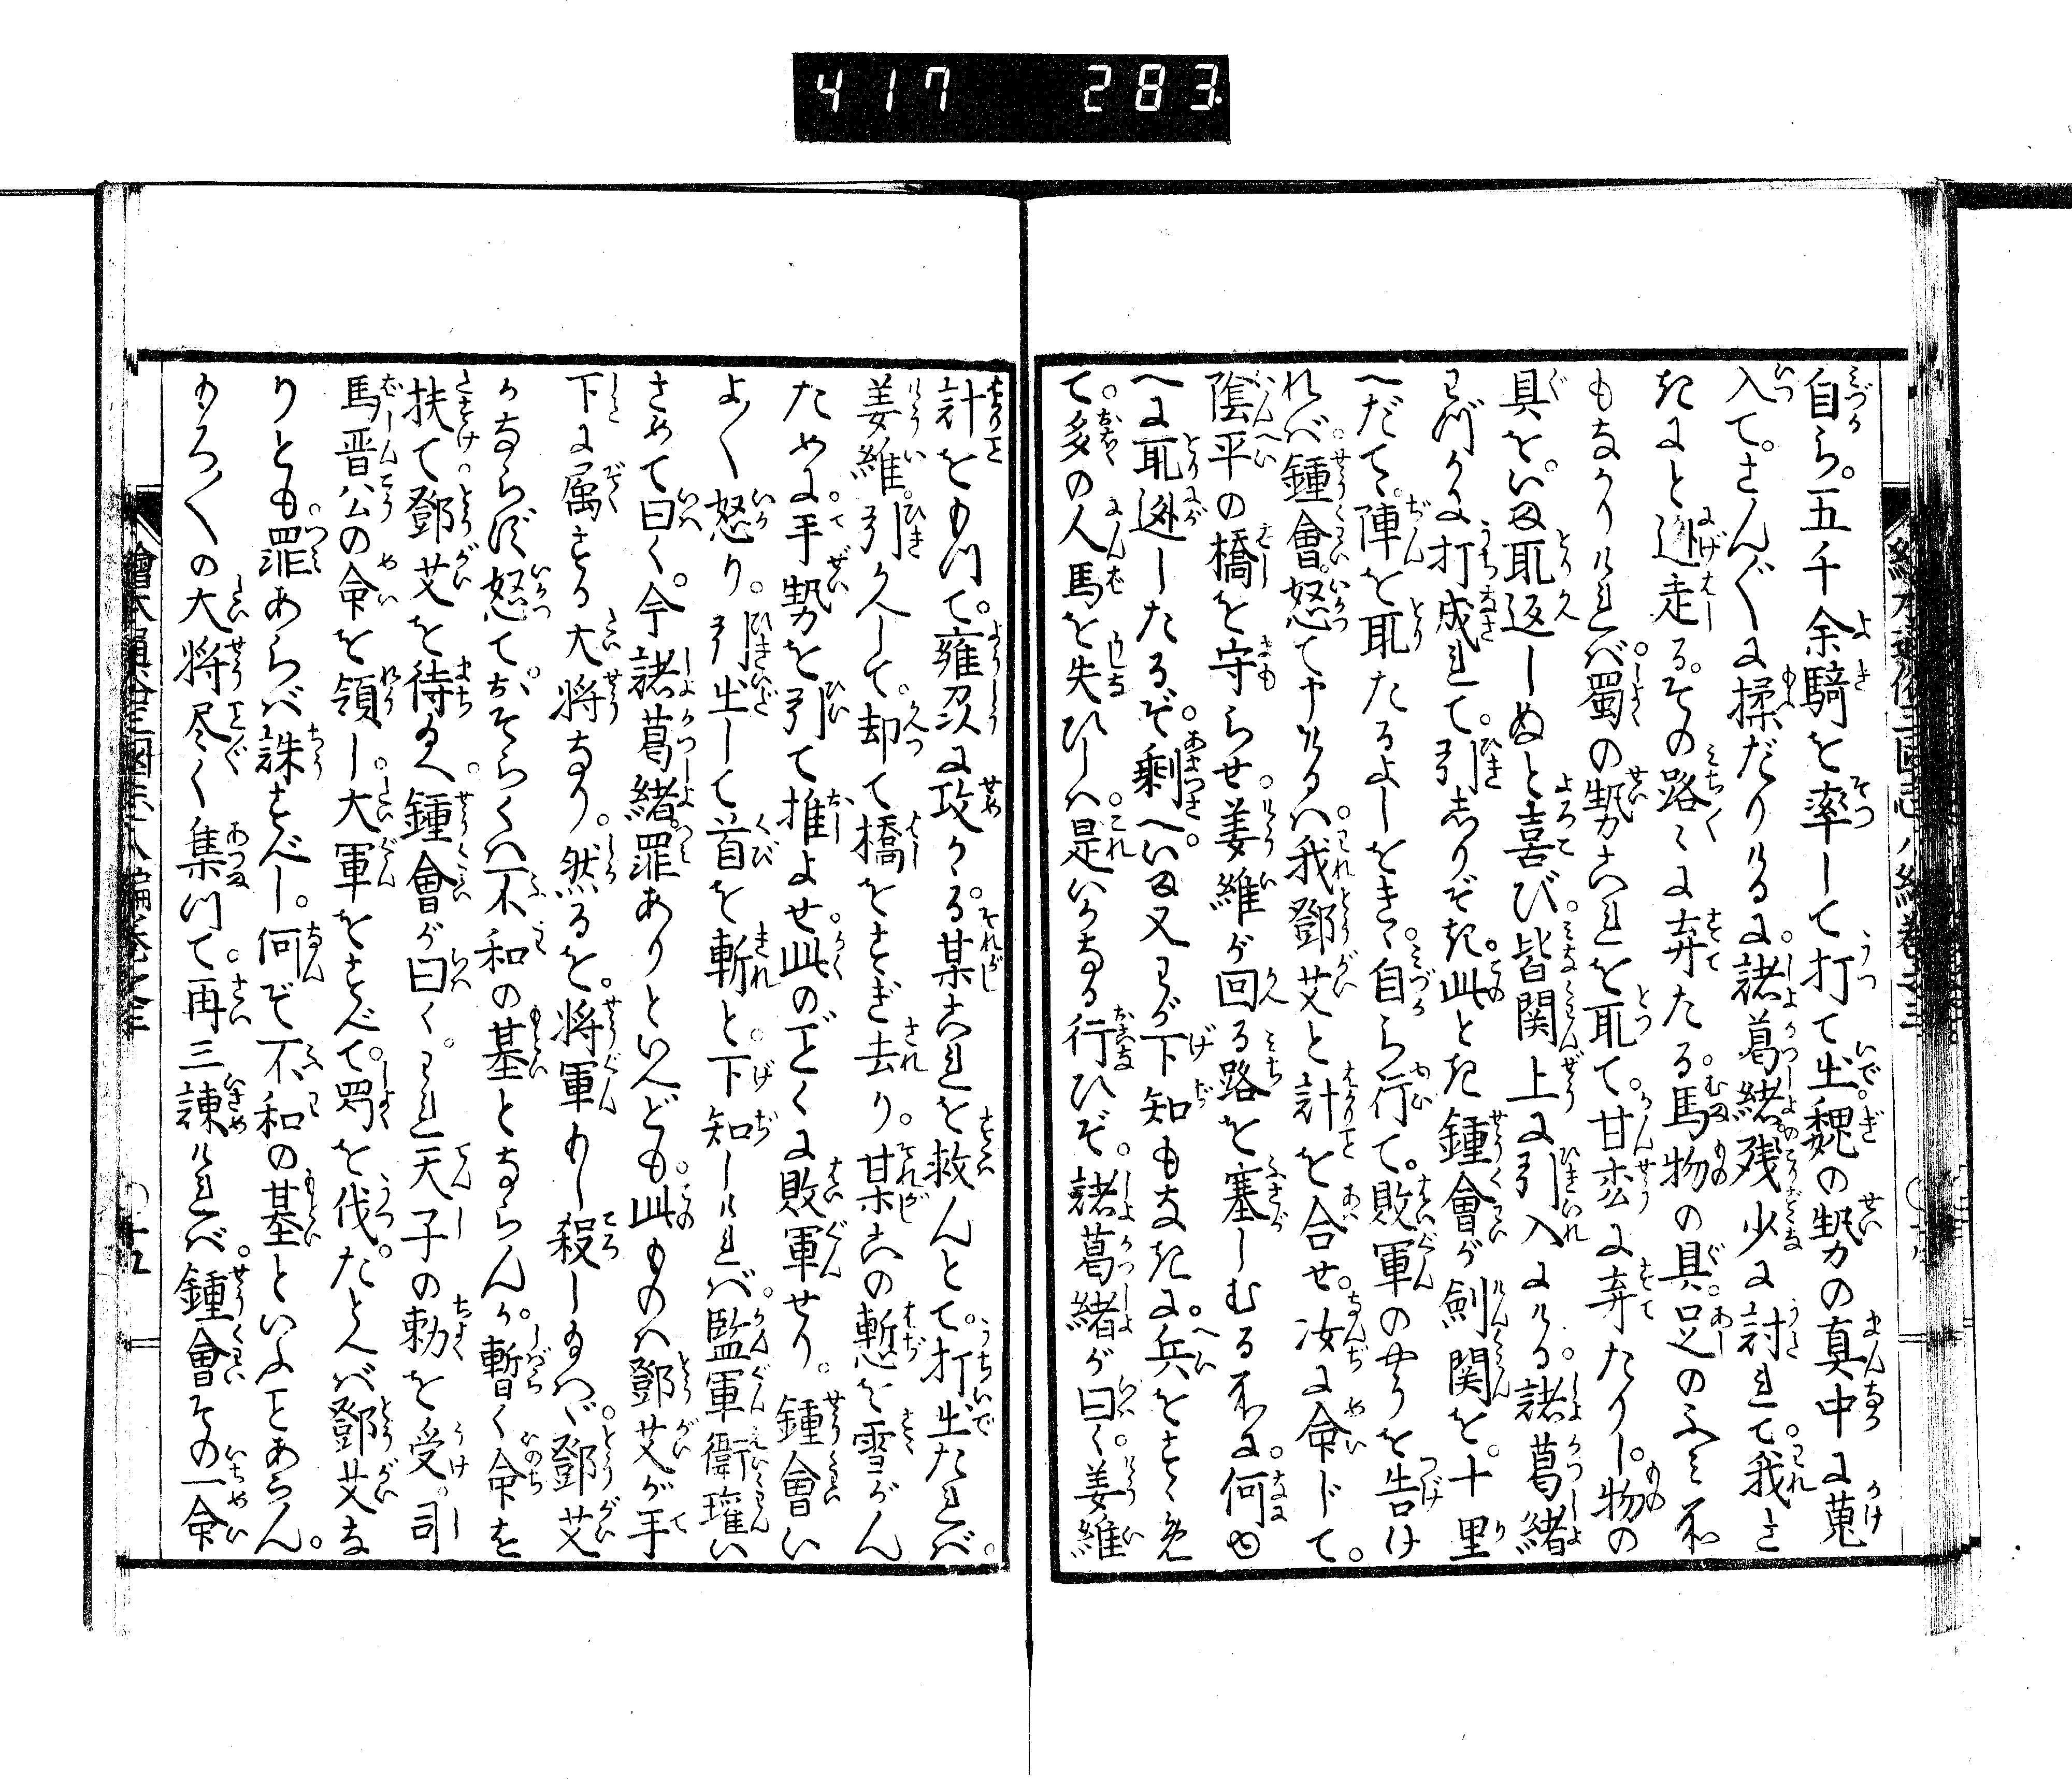 417 283.
自ら。五千余騎を率して打て出。魏の勢の真中に蒐
入て。さんざんに揉だりける に。諸葛緒残少に討れて。我さ
きにと迯走る。その路々に弃たる。馬物の具。足のふみ所
もなかりければ。蜀の勢これを取て。甘松に弃たりし。物の
具を。いま取返しぬと喜び。皆関上に引入にける。諸葛緒
わづかに打成れて。引しりぞき。此とき鍾會が剣関を。十里
へだて。陣を取たるよしをきゝ。自ら行て。敗軍のやうを告け
れば。鍾會。怒て申けるは。我鄧艾と計を合せ。汝に命じて。
陰平の橋を守らせ。姜維が回る路を塞しむる所に。何ゆ
へに取迯したるぞ。剰へ。いま又わが下知もなきに。兵をすゝめ
て。多の人馬を失ひしは。是いかなる行ひぞ。諸葛緒が曰く。姜維
計をもつて。雍州に攻かゝる。某これを救んとて。打出たれば。
姜維。引久して。却て橋をすぎ去り。某この慙を雪がん
ために。手勢を引て推よせ。此のごとくに敗軍せり。鍾會い
よ〱怒り。引出して首を斬と。下知しければ。監軍衛瓘い
さめて曰く。今諸葛緒。罪ありといへども。此ものは鄧艾が手
下に属する大将なり。然るを。将軍もし殺し玉はゞ。鄧艾
かならず怒て。おそらくは不和の基とならんか。暫く命を
扶て。鄧艾を待玉へ。鍾會が曰く。われ天子の勅を受。司
馬晋公の命を領し。大軍をすべて。蜀を伐。たとへば鄧艾な
りとも。罪あらば誅すべし。何ぞ不和の基といふことあらん。
もろ〱の大将尽く集つて。再三諫ければ。鍾會その一命